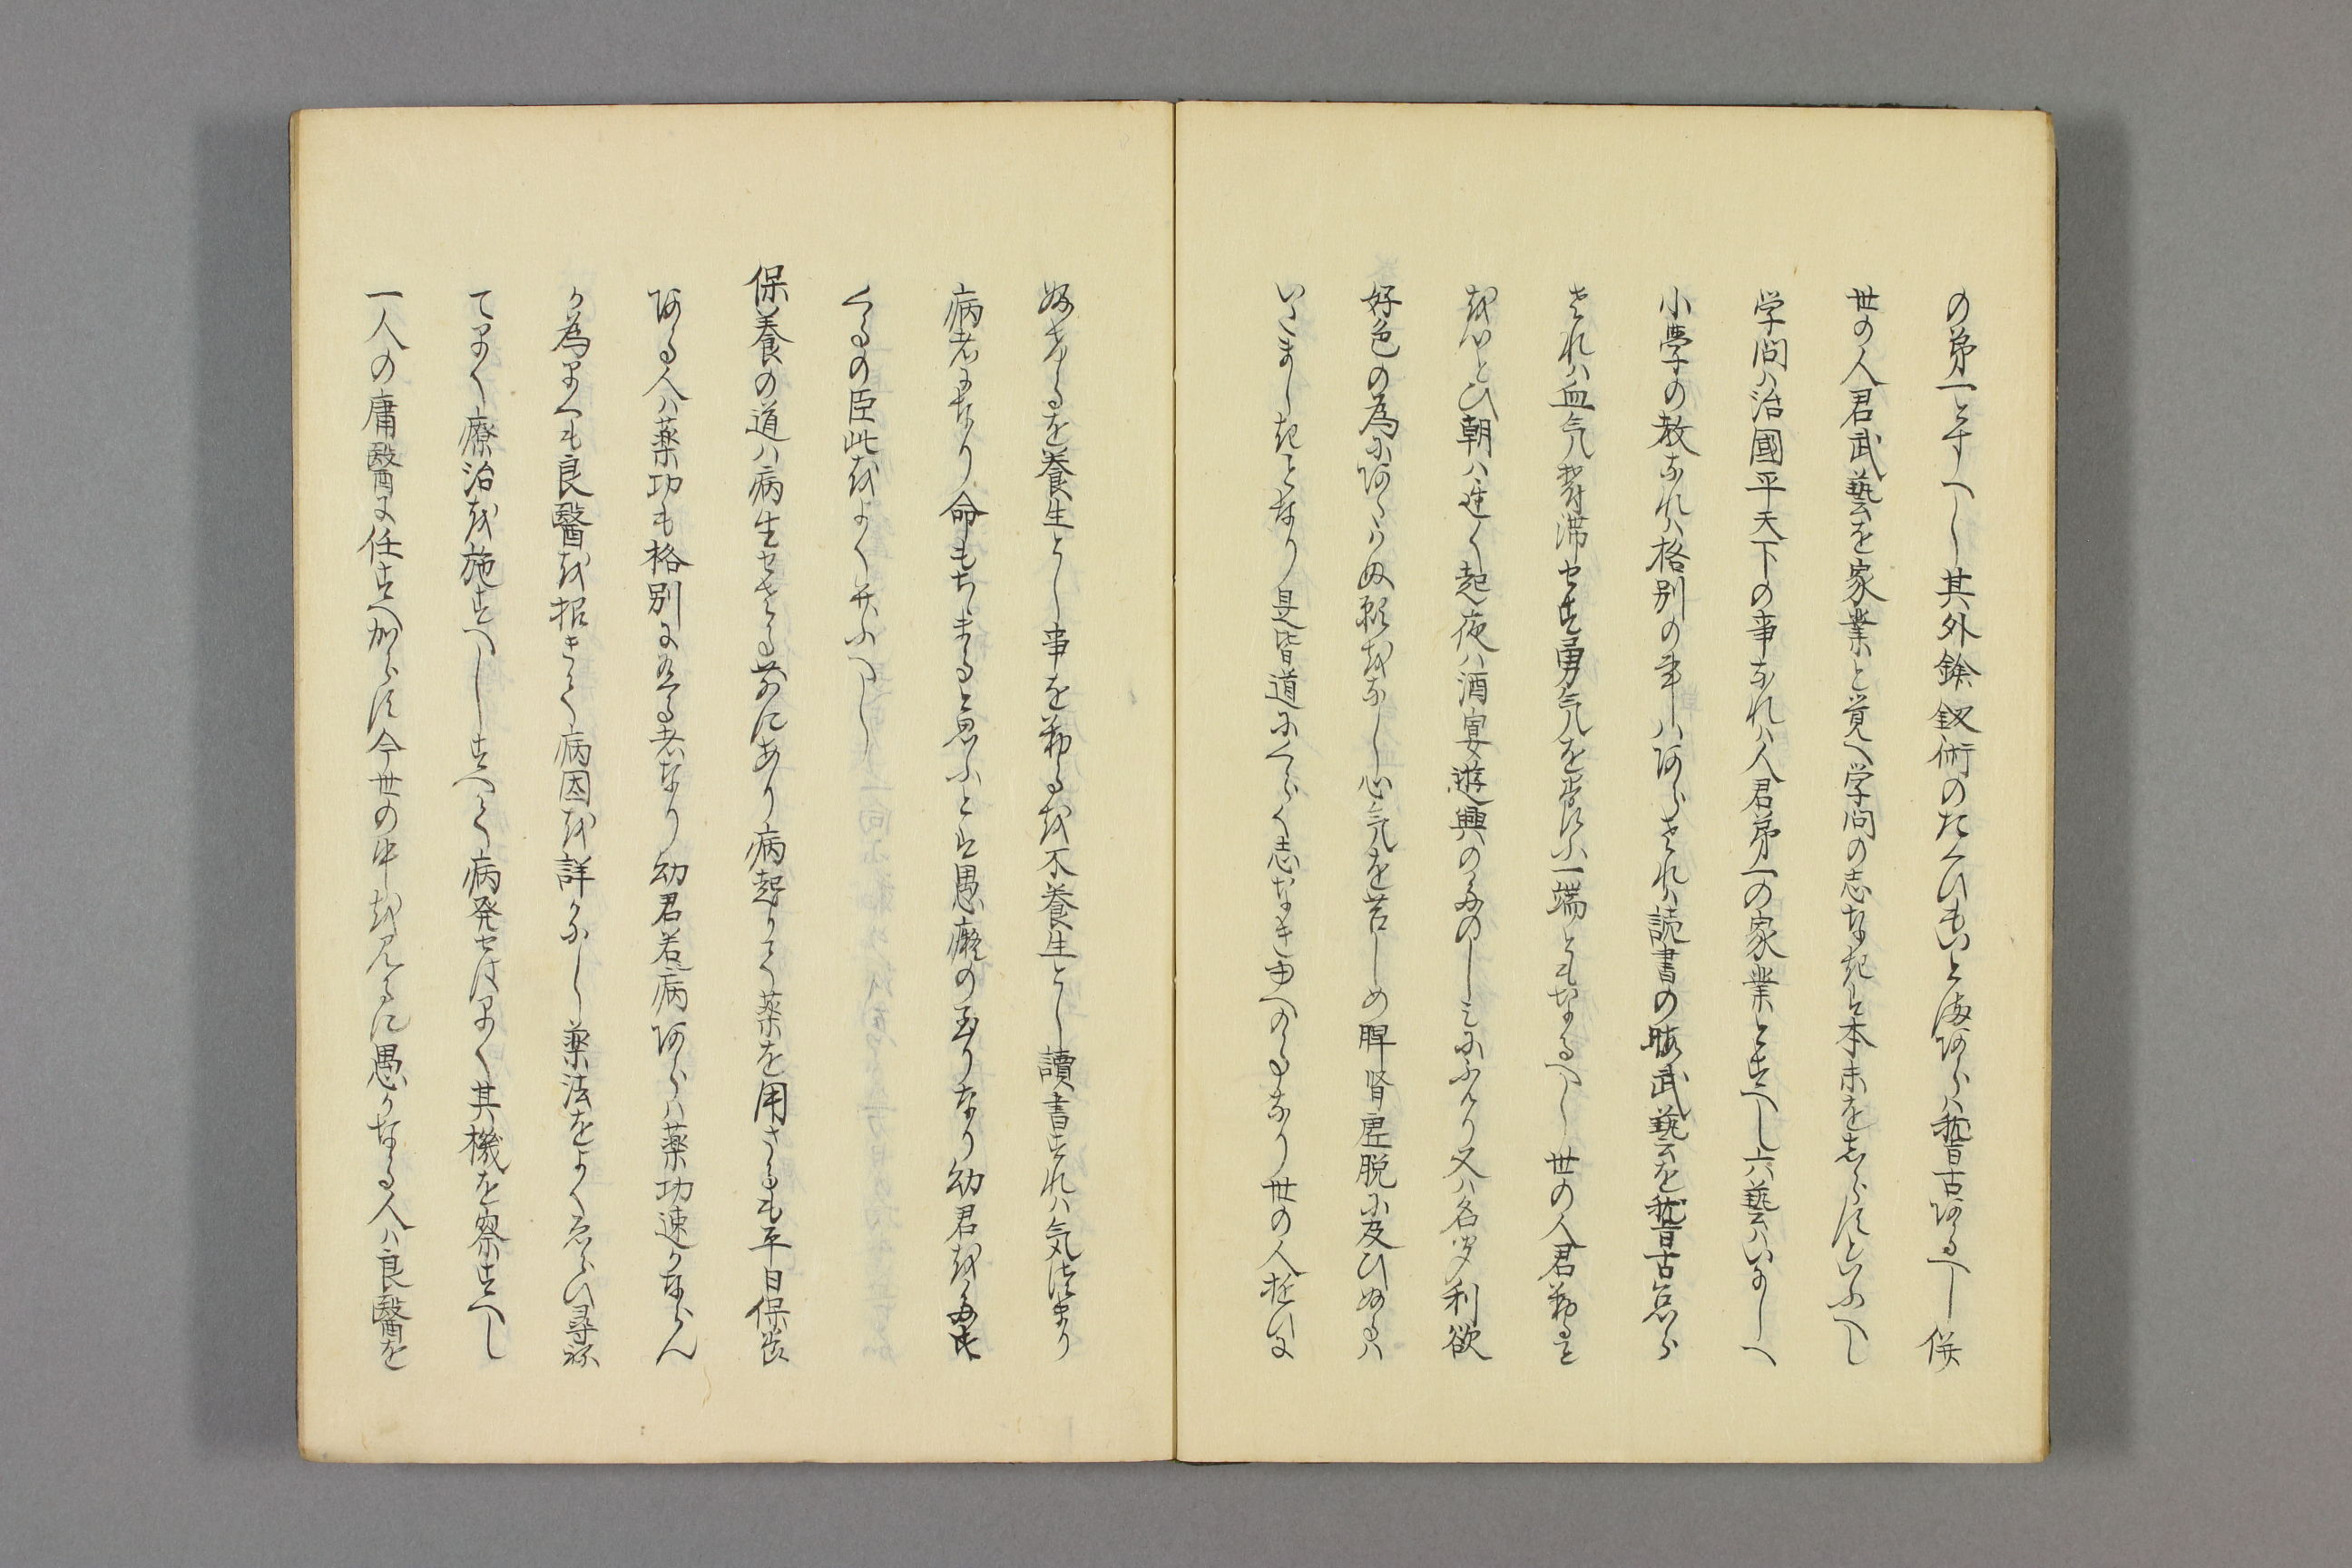 の第一とすへし其外鎗釼術のたくひもいとまあらハ稽古あるへし併
世の人君武藝を家業と覚へ学問の志なきは本末をしらすといふへし
学問ハ治國平天下の事なれハ人君第一の家業とすへし六藝ハいにしへ
小學の教なれハ格別の事しハあらされハ読書の暇武藝を稽古怠ら
されハ血気欝滞せす勇気を養ふ一端ともなるへし世の人君勤る
をいとひ朝ハ遅く起夜ハ酒宴遊興のたのしミにふけり又ハ名聞利欲
好色の為にあらぬ願をなし心気を苦しめ脾腎虚脱に及ひぬるハ
いたましきことなり是皆道にくらく志なきゆへのことなり世の人遊ひに
好きるを養生とし事を勤るを不養生とし讀書すれハ気つまり
病者になり命もちゝまると思ふとは愚癡の至りなり幼君をそた
つるの臣此をよく弁ふへし
保養の道ハ病生せさる前にあり病起りて薬を用さるも平日保養
ある人ハ薬功も格別に見る者なり幼君若病あらハ薬功速かならん
か為にハ良醫を招きて病因を詳かにし薬法をよくゑらひ尋ね
て早く療治を施すへしすへて病発せは早く其機を察すへし
一人の庸醫に任すへからす今世の中を見るに愚かなる人ハ良醫を